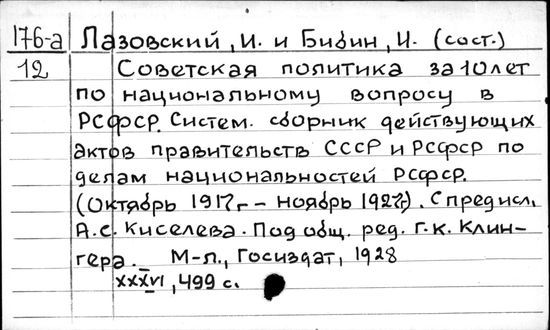 176-а Лазовский, И. и Бибин, И. (сост.)
12 Советская политика за 10 лет
по национальному вопросу в
РСФСР. Систем. сборник действующих
актов правительств СССР и РСФСР по
делам национальностей РСФСР.
(Октябрь 1917г – ноябрь 1927г). С предисл.
А.С. Киселева. Под общ. ред. Г.К. Клин-
гера. М-Л., Госиздат, 1928
XXXVI, 499 с.